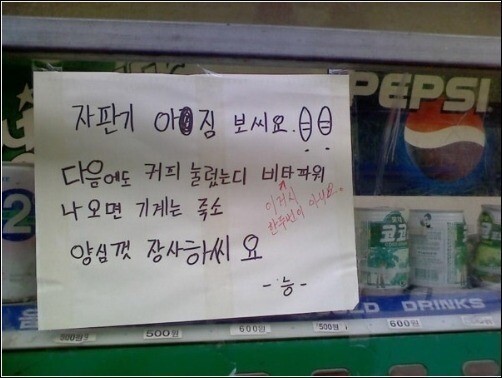 PEPSI
자판기 아짐 보씨요.
다음에도 커피 눌렀는디 비타파워
나오면 기계는 죽소
이거시
한두번이 아니요.
양심껏 장사하씨요
-능-
코코
2
DRINKS
500원
500원
600원
500원
600원